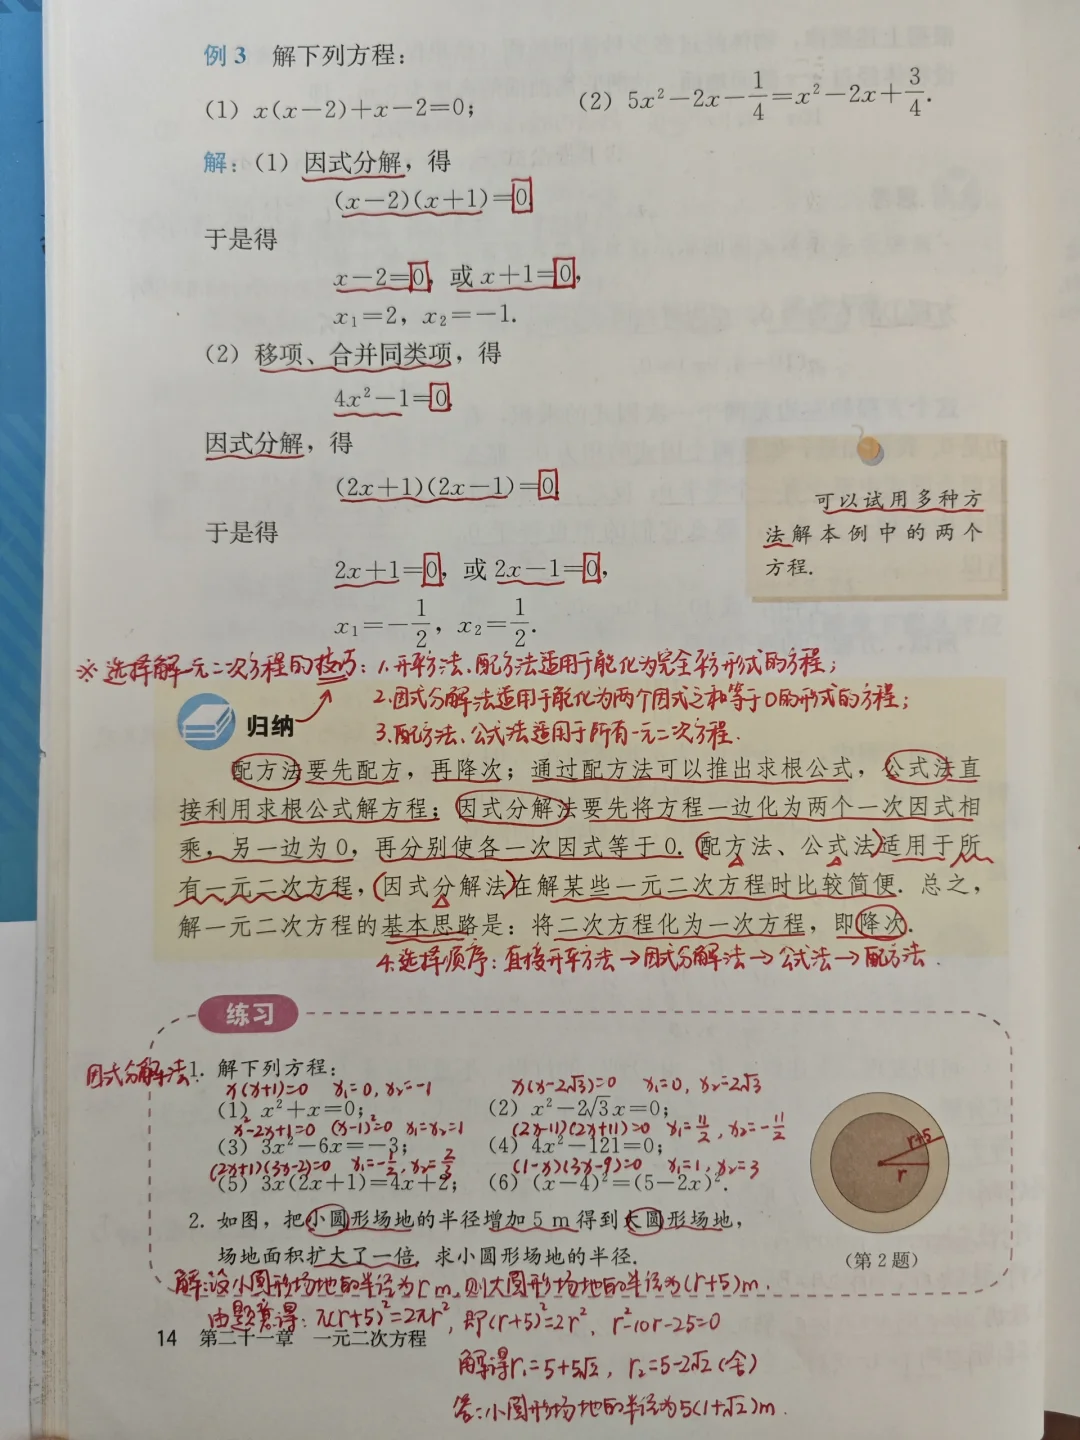 例3 解下列方程：
(1) x(x−2)+x−2=0; (2) 5x²−2x−1/4=x²−2x+3/4.
解：(1) 因式分解，得
(x−2)(x+1)=0.
于是得
x−2=0, 或 x+1=0,
x₁=2, x₂=−1.
(2) 移项、合并同类项，得
4x²−1=0.
因式分解，得
(2x+1)(2x−1)=0.
于是得
2x+1=0, 或 2x−1=0,
x₁=−1/2, x₂=1/2.
可以试用多种方
法解本例中的两个
方程.
※选择解一元二次方程的技巧：1.开平方法、配方法适用于能化为完全平方形式的方程；
2.因式分解法适用于能化为两个因式之和等于0的形式的方程；
归纳
3.配方法、公式法适用于所有一元二次方程.
配方法要先配方，再降次；通过配方法可以推出求根公式，公式法直
接利用求根公式解方程；因式分解法要先将方程一边化为两个一次因式相
乘，另一边为0，再分别使各一次因式等于0. 配方法、公式法适用于所
有一元二次方程，因式分解法在解某些一元二次方程时比较简便. 总之，
解一元二次方程的基本思路是：将二次方程化为一次方程，即降次.
4.选择顺序：直接开平方法→因式分解法→公式法→配方法.
练习
因式分解法：
1. 解下列方程：
x(x+1)=0 x₁=0, x₂=−1 x(x−2√3)=0 x₁=0, x₂=2√3
(1) x²+x=0; (2) x²−2√3x=0;
x²−2x+1=0 (x−1)²=0 x₁=x₂=1 (2x−11)(2x+11)=0 x₁=11/2, x₂=−11/2
(3) 3x²−6x=−3; (4) 4x²−121=0;
(2x+1)(3x−2)=0 x₁=−1/2, x₂=2/3 (1−x)(3x−9)=0 x₁=1, x₂=3
(5) 3x(2x+1)=4x+2; (6) (x−4)²=(5−2x)².
r+5
r
2. 如图，把小圆形场地的半径增加5 m得到大圆形场地，
场地面积扩大了一倍. 求小圆形场地的半径.
(第2题)
解：设小圆形场地的半径为r m, 则大圆形场地的半径为(r+5)m.
由题意得：π(r+5)²=2πr², 即(r+5)²=2r², r²−10r−25=0
14 第二十一章 一元二次方程
解得r₁=5+5√2, r₂=5−2√2(舍)
答：小圆形场地的半径为5(1+√2)m.